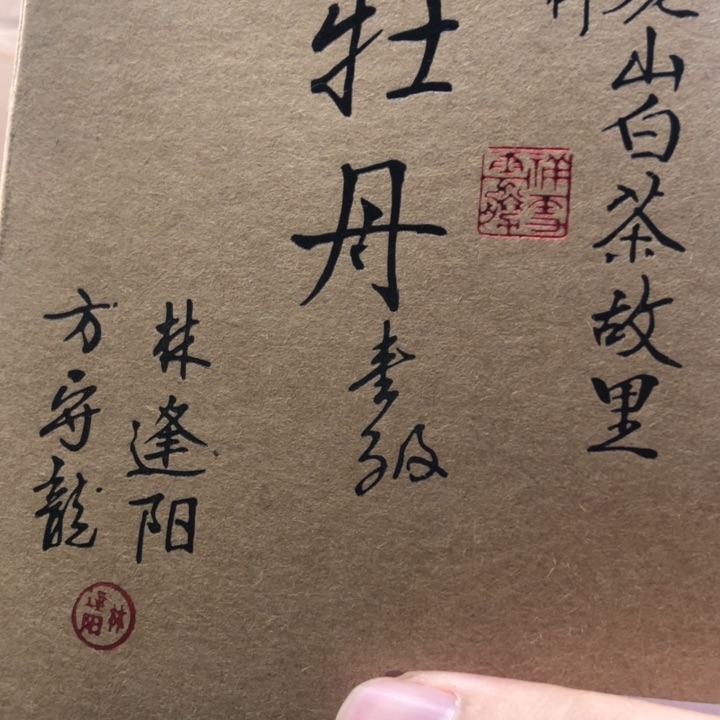 山白茶故里
牡丹壹级
林逢阳
方守龍
林逢阳